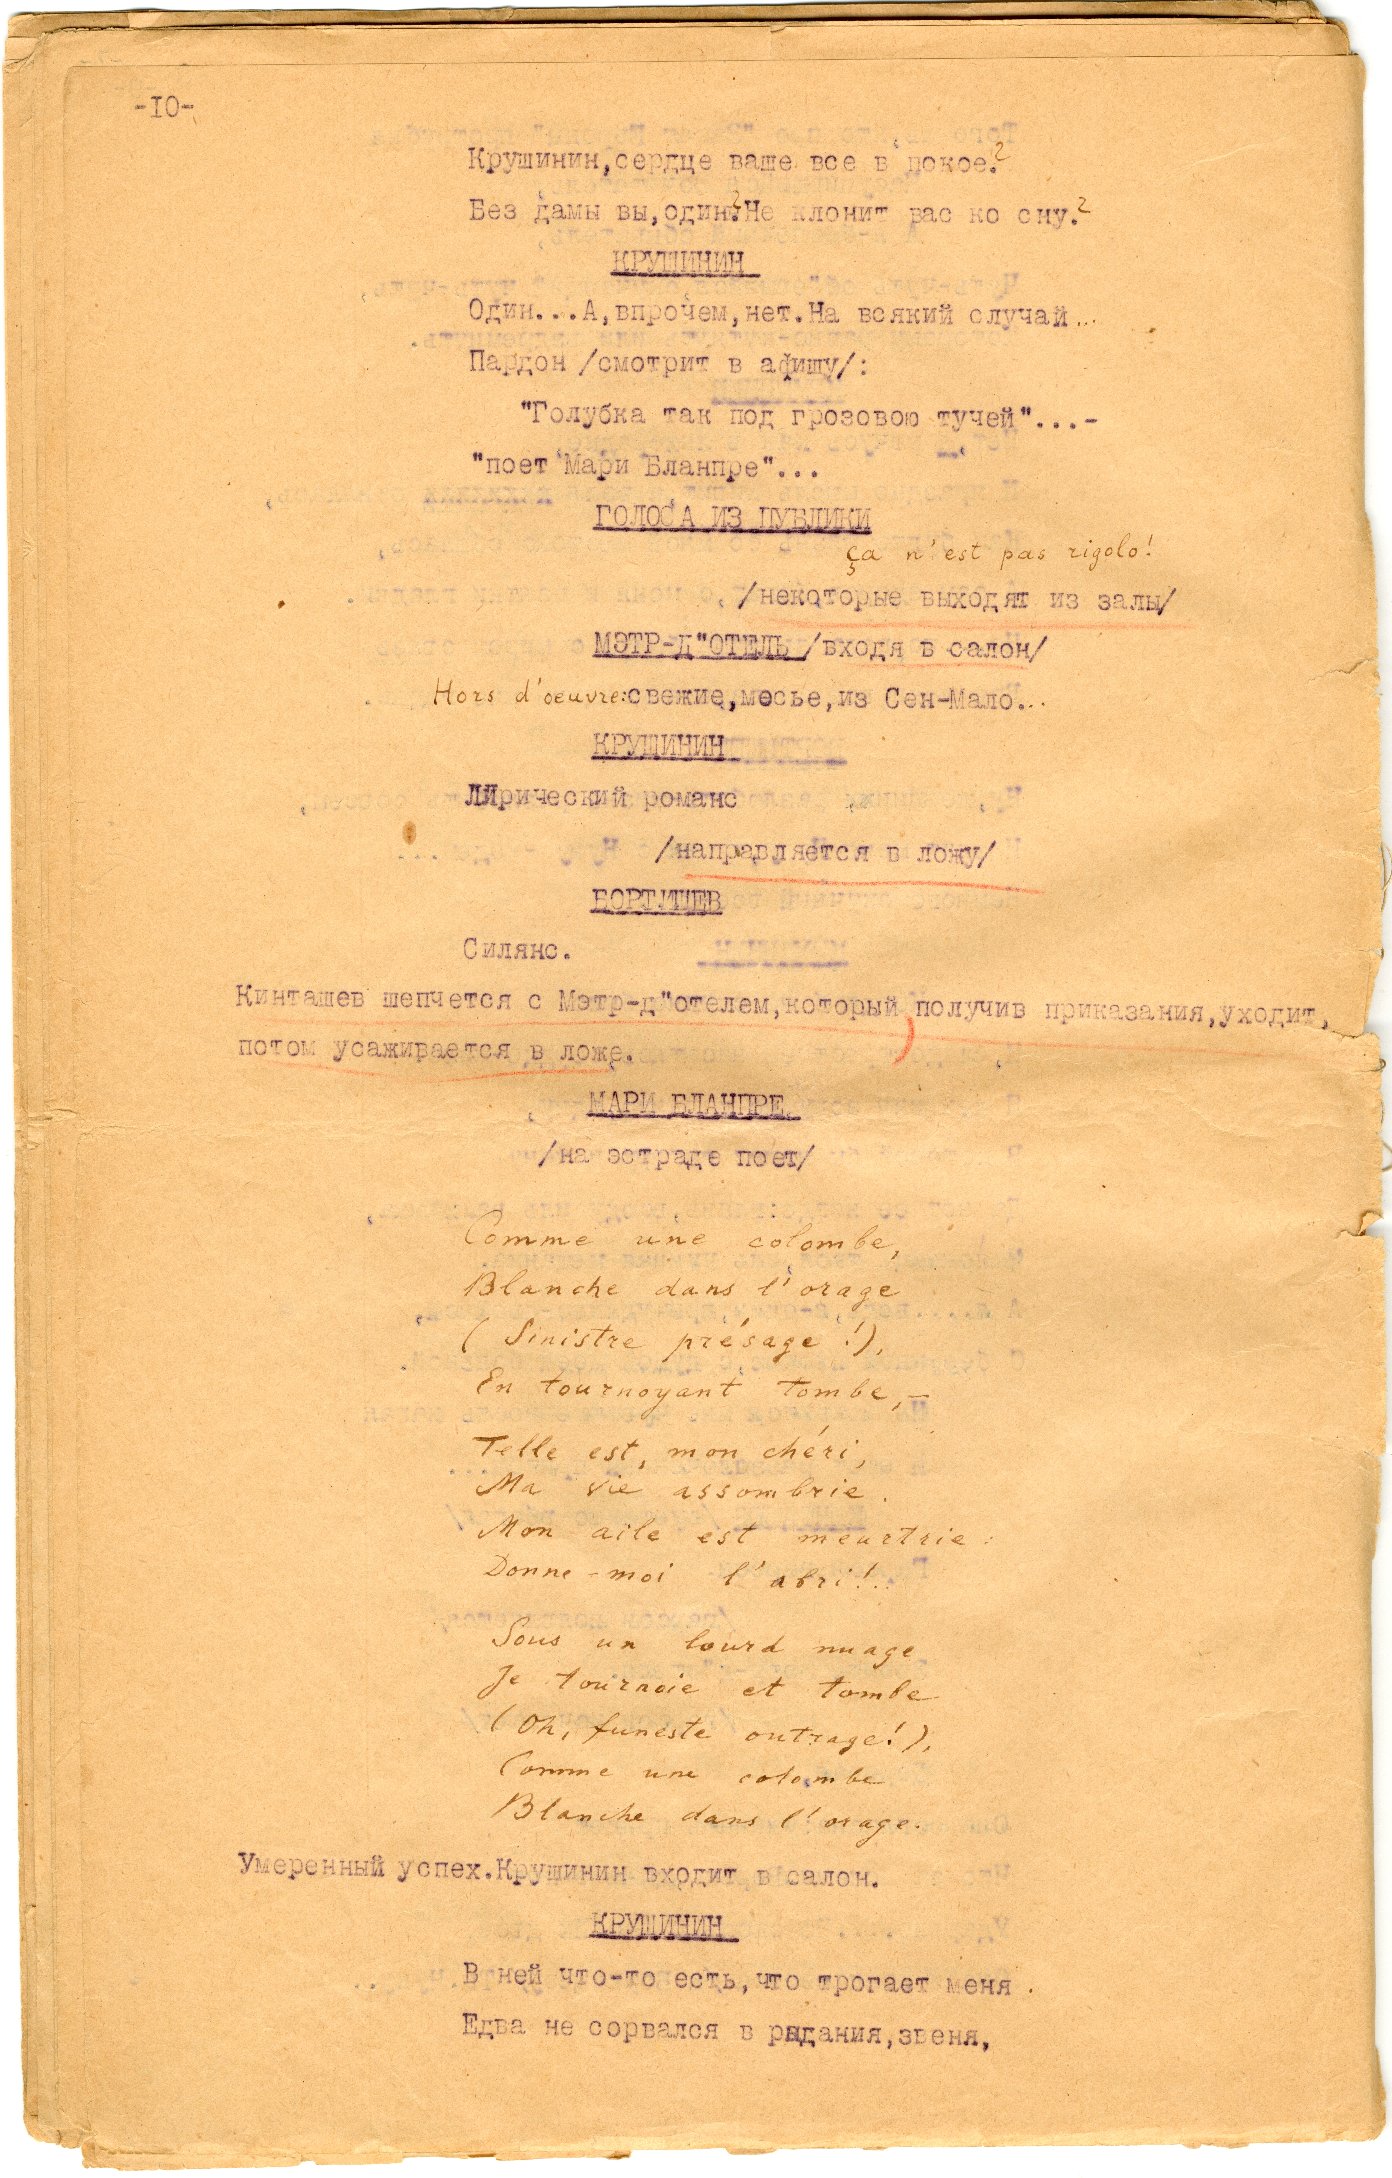 -10-
Крушинин,сердце ваше все в покое.?
Без дамы вы,один?Не клонит вас ко сну.?
КРУШИНИН
Один...А,впрочем,нет.На всякий случай...
Пардон /смотрит в афишу/:
"Голубка так под грозовою тучей"...-
"поет Мари Бланпре"...
ГОЛОСА ИЗ ПУБЛИКИ
Ça n'est pas rigolo!
/некоторые выходят из залы/
МЭТР-Д"ОТЕЛЬ /входя в салон/
Hors d'oeuvre:свежие,мосье,из Сен-Мало...
КРУШИНИН
Лирический романс
/направляется в ложу/
БОРТИЩЕВ
Силянс.
Кинташев шепчется с Мэтр-д"отелем,который,получив приказания,уходит,
потом усаживается в ложе.
МАРИ БЛАНПРЕ
/на эстраде поет/
Comme une colombe,
Blanche dans l'orage
(Sinistre présage!),
En tournoyant tombe,-
Telle est, mon chéri,
Ma vie assombrie.
Mon aile est meurtrie:
Donne-moi l'abri!..
Sous un lourd nuage
Je tournoie et tombe
(Oh, funeste outrage!),
Comme une colombe
Blanche dans l'orage.
Умеренный успех.Крушинин входит в салон.
КРУШИНИН
В ней что-то есть,что трогает меня.
Едва не сорвался в рыдания,звеня,